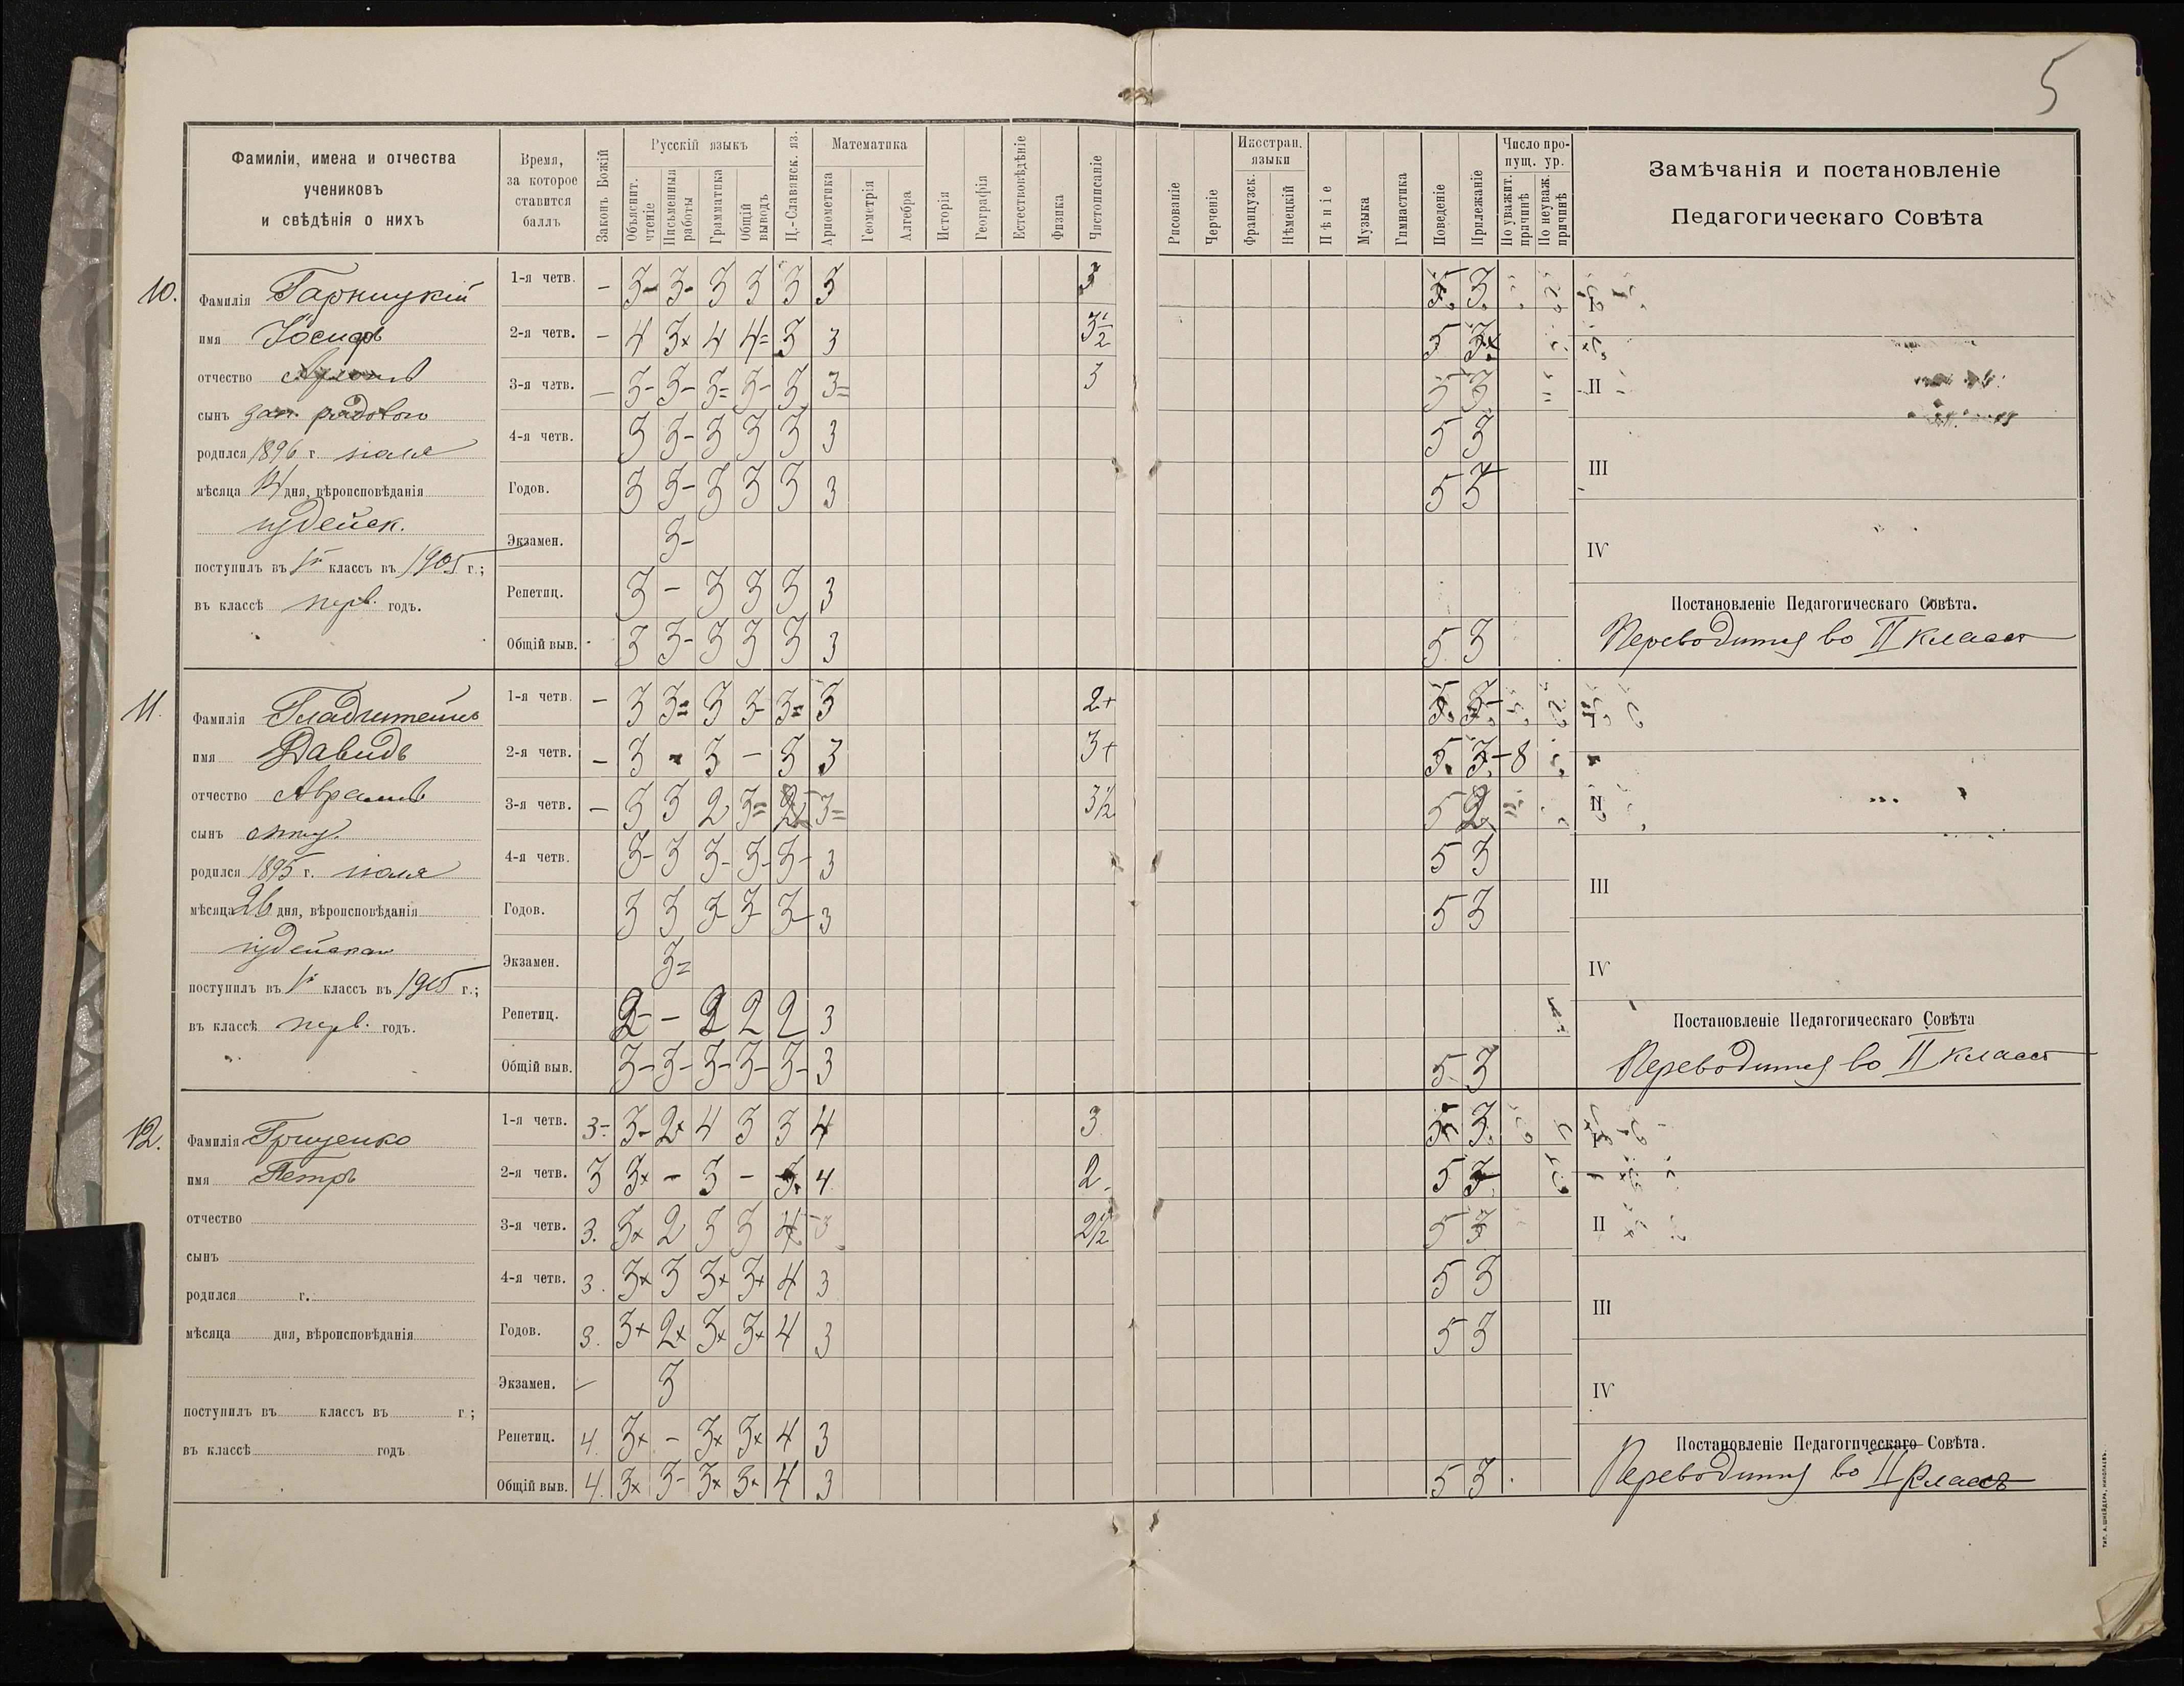 5
Фамиліи, имена и отчества
учениковъ
и свѣдѣнія о нихъ
Время,
за которое
ставится
баллъ
Законъ Божій
Русскій языкъ
Объяснит. чтеніе
Письменныя работы
Грамматика
Общій выводъ
Ц.-Славянск. яз.
Математика
Ариѳметика
Геометрія
Алгебра
Исторія
Географія
Естествовѣдѣніе
Физика
Чистописаніе
Рисованіе
Черченіе
Иностран. языки
Французск.
Нѣмецкій
Пѣніе
Музыка
Гимнастика
Поведеніе
Прилежаніе
Число пропущ. ур.
По уважит. причинѣ
По неуваж. причинѣ
Замѣчанія и постановленіе
Педагогическаго Совѣта
10.
Фамилія Гарницкій
имя Іосифъ
отчество
сынъ зап. рядового
родился 1896 г. іюля
мѣсяца 14 дня, вѣроисповѣданія
іудейск.
поступилъ въ Iй классъ въ 1905 г.;
въ классѣ перв. годъ.
1-я четв. — 3- 3- 3 3 3 3 3 5 3
2-я четв. — 4 3+ 4 4= 3 3 3½ 5 3+
3-я четв. — 3- 3- 3= 3- 3 3= 3 5 3
4-я четв. 3 3- 3 3 3 3 5 3
Годов. 3 3- 3 3 3 3 5 3
Экзамен. 3-
Репетиц. 3 — 3 3 3 3
Общій выв. 3 3- 3 3 3 3 5 3
I
II
III
IV
Постановленіе Педагогическаго Совѣта.
Переводится во II классъ
11.
Фамилія Гладштейнъ
имя Давидъ
отчество Аврамовъ
сынъ
родился 1895 г. іюля
мѣсяца 26 дня, вѣроисповѣданія
іудейскаго
поступилъ въ Iй классъ въ 1905 г.;
въ классѣ перв. годъ.
1-я четв. — 3 3= 3 3- 3= 3 2+ 5 3-
2-я четв. — 3 - 3 — 3 3 3+ 5 3- 8
3-я четв. — 3 3 2 3= 2 3= 3½ 5 2
4-я четв. 3- 3 3- 3- 3- 3 5 3
Годов. 3 3 3- 3- 3- 3 5 3
Экзамен. 3=
Репетиц. 2- — 2 2 2 3
Общій выв. 3- 3- 3- 3- 3- 3 5 3
I
II
III
IV
Постановленіе Педагогическаго Совѣта
Переводится во II классъ
12.
Фамилія Грищенко
имя Петръ
отчество
сынъ
родился г.
мѣсяца дня, вѣроисповѣданія
поступилъ въ классъ въ г.;
въ классѣ годъ
1-я четв. 3- 3- 2+ 4 3 3 4 3 5 3
2-я четв. 3 3+ — 3 — 3 4 2 5 3
3-я четв. 3. 3+ 2 3 3 4 3 2½ 5 3
4-я четв. 3. 3+ 3 3+ 3+ 4 3 5 3
Годов. 3. 3+ 2+ 3+ 3+ 4 3 5 3
Экзамен. — 3
Репетиц. 4. 3+ — 3+ 3+ 4 3
Общій выв. 4. 3+ 3- 3+ 3+ 4 3 5 3
I
II
III
IV
Постановленіе Педагогическаго Совѣта.
Переводится во II классъ
ТИП. А. ШНЕЙДЕРА, НИКОЛАЕВЪ.